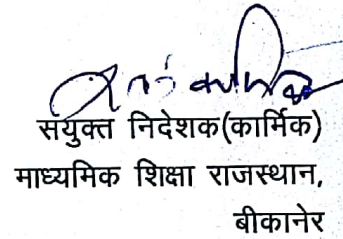 सयुक्त निदेशक(कार्मिक)
माध्यमिक शिक्षा राजस्थान,
बीकानेर